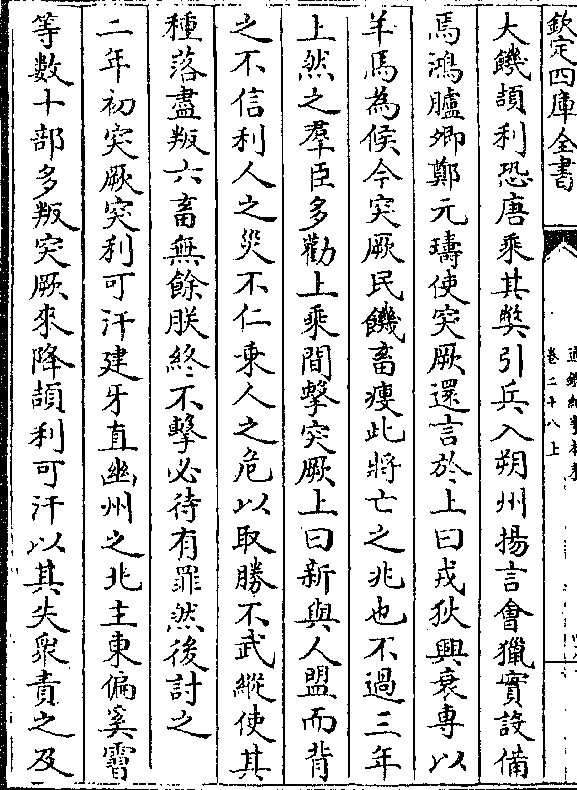 欽定四庫全書
通鑑紀事本末
卷二十八上
大饑頡利恐唐乘其弊引兵入朔州揚言會獵實設備
焉鴻臚卿鄭元璹使突厥還言於上曰戎狄興衰專以
羊馬為候今突厥民饑畜瘦此將亡之兆也不過三年
上然之羣臣多勸上乘間擊突厥上曰新與人盟而背
之不信利人之災不仁乘人之危以取勝不武縱使其
種落盡叛六畜無餘朕終不擊必待有罪然後討之
二年初突厥突利可汗建牙直幽州之北主東偏奚霫
等數十部多叛突厥來降頡利可汗以其失衆責之及